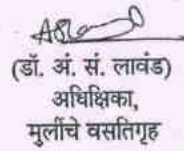 (डॉ. अं. सं. लावंड)
अधिक्षिका,
मुलींचे वसतिगृह